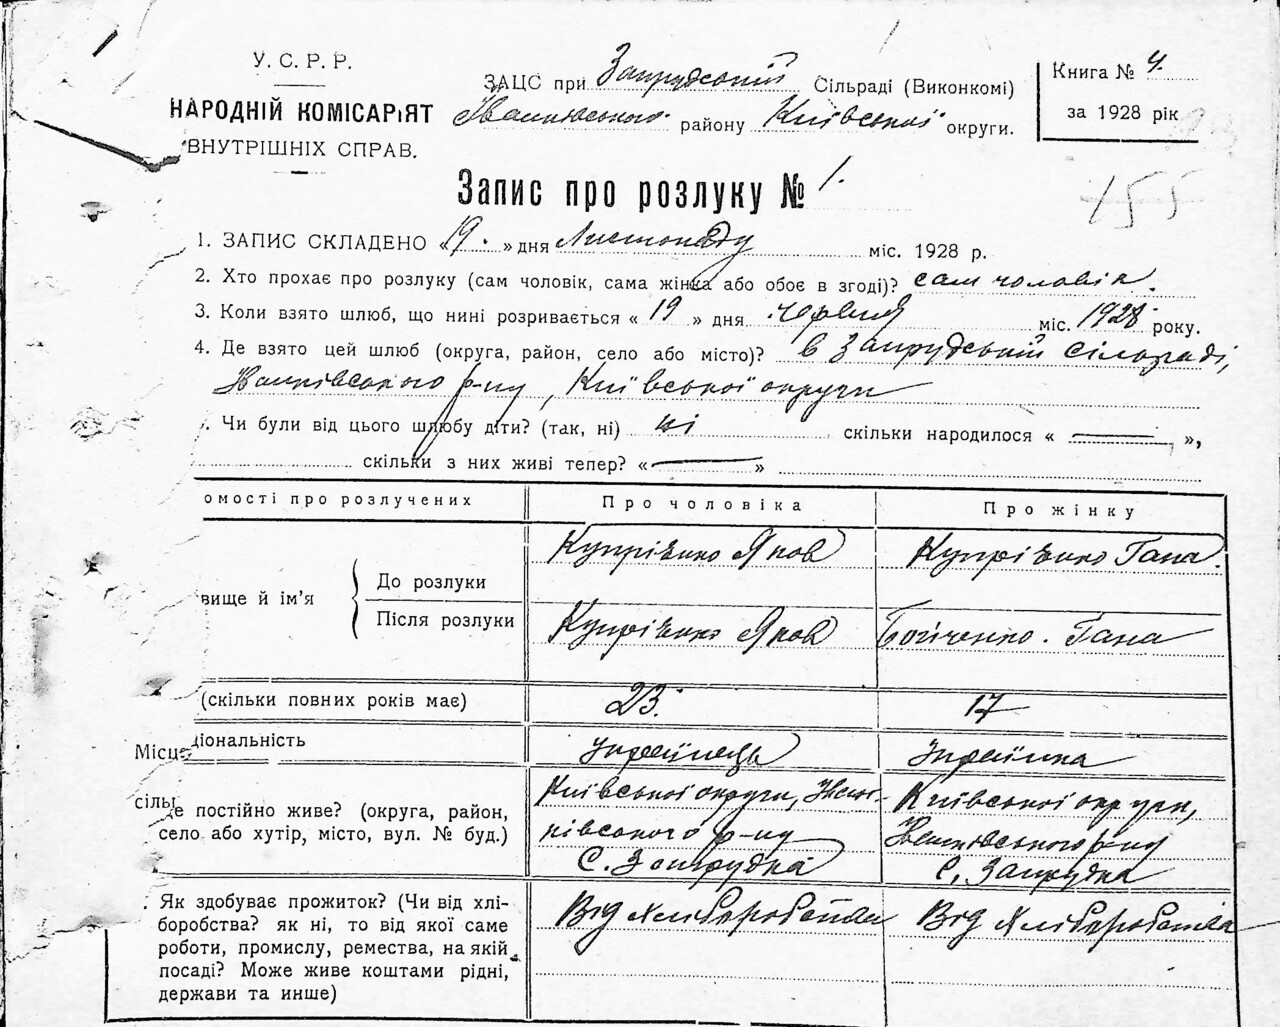 У. С. Р. Р.
НАРОДНІЙ КОМІСАРІЯТ
ВНУТРІШНІХ СПРАВ.
ЗАЦС при Запрудській Сільраді (Виконкомі)
Іванківського району Київської округи.
Книга № 4.
за 1928 рік
Запис про розлуку № 1.
155
1. ЗАПИС СКЛАДЕНО « 19. » дня Листопаду міс. 1928 р.
2. Хто прохає про розлуку (сам чоловік, сама жінка або обоє в згоді)? сам чоловік.
3. Коли взято шлюб, що нині розривається « 19 » дня червня міс. 1928 року.
4. Де взято цей шлюб (округа, район, село або місто)? в Запрудській сільраді,
Іванківського р-ну, Київської округи
. Чи були від цього шлюбу діти? (так, ні) ні скільки народилося « — »,
скільки з них живі тепер? « — »
омості про розлучених
Про чоловіка
Про жінку
вище й ім'я
До розлуки
Купрієнко Яков
Купрієнко Гана.
Після розлуки
Купрієнко Яков
Гана
(скільки повних років має)
23.
17
Місце
ціональність
Українець
Українка
сіль
е постійно живе? (округа, район,
село або хутір, місто, вул. № буд.)
Київської округи, Іван-
ківського р-ну
С. Запрудка
Київської округи,
Іванківського р-ну
С. Запрудка
. Як здобуває прожиток? (Чи від хлі-
боробства? як ні, то від якої саме
роботи, промислу, ремества, на якій
посаді? Може живе коштами рідні,
держави та инше)
Від хліборобства
Від хліборобства